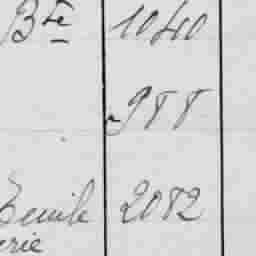 Bte 1040
988
Emile 2082
erie